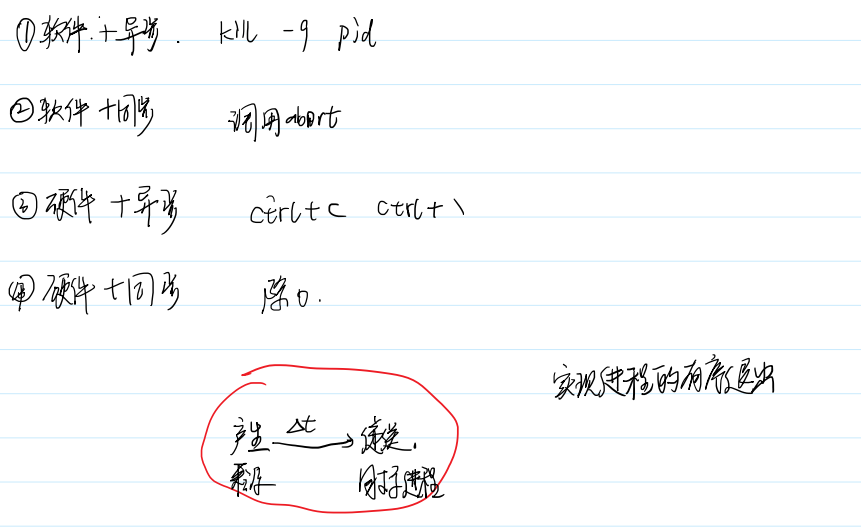 ①软件+异步. kill -9 pid
②软件+同步 调用abort
③硬件+异步 ctrl+c ctrl+\
④硬件+同步 除0.
实现进程的有序退出
产生 Δt 递送.
进程